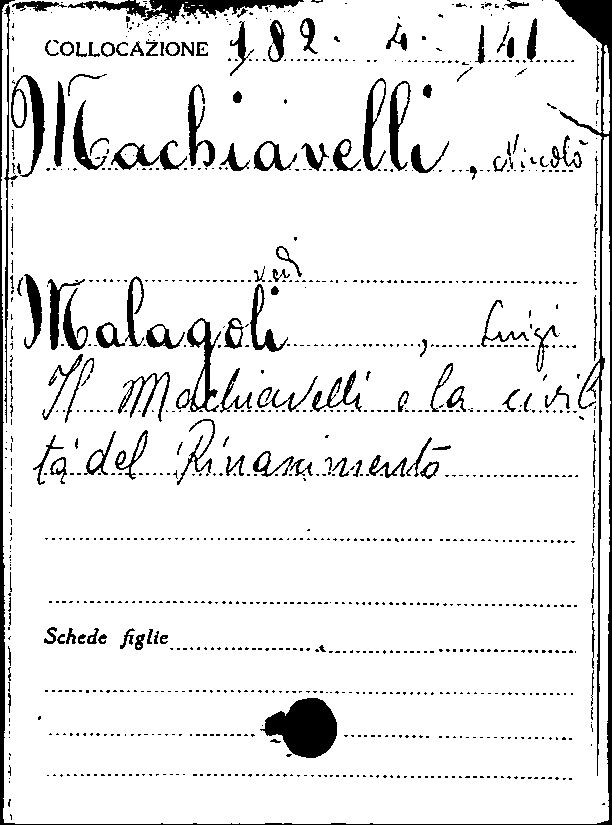 COLLOCAZIONE 182. 4. 141
Machiavelli, Niccolò
vedi
Malagoli, Luigi
Il Machiavelli e la civil
tà del Rinascimento
Schede figlie